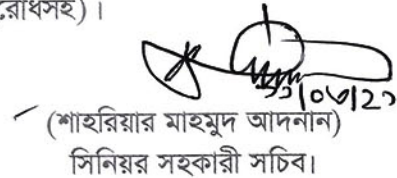 রোধসহ)।
(শাহরিয়ার মাহমুদ আদনান)
সিনিয়র সহকারী সচিব।